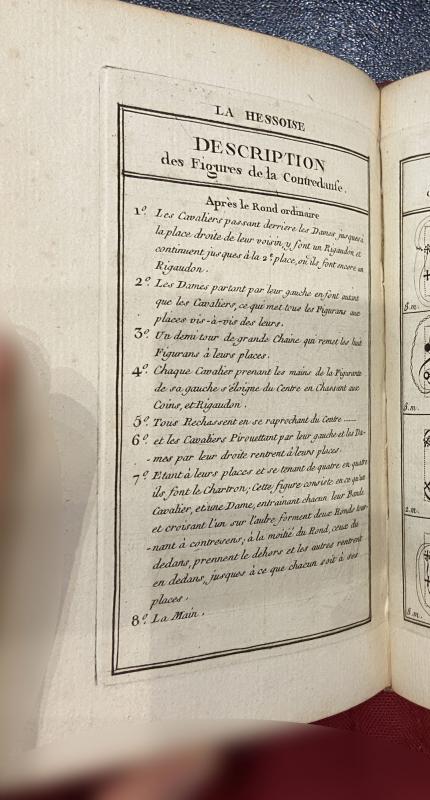 LA HESSOISE
DESCRIPTION
des Figures de la Contredanse.
Après le Rond ordinaire
1º. Les Cavaliers passant derriere les Dames jusques à
la place droite de leur voisin, y font un Rigaudon, et
continuent jusques à la 2e place, où ils font encore un
Rigaudon.
2º. Les Dames partant par leur gauche en font autant
que les Cavaliers, ce qui met tous les Figurans aux
places vis-à-vis des leurs.
3º. Un demi tour de grande Chaine qui remet les huit
Figurans à leurs places.
4º. Chaque Cavalier prenant les mains de la Figurante
de sa gauche s'éloigne du Centre en Chassant aux
Coins, et Rigaudon.
5º. Tous Rechassent en se raprochant du Centre
6º. et les Cavaliers Pirouettant par leur gauche et les Da-
-mes par leur droite rentrent à leurs places.
7º. Etant à leurs places et se tenant de quatre en quatre
ils font le Chartron; Cette figure consiste en ce qu'un
Cavalier, et une Dame, entrainant chacun leur Bande,
et croisant l'un sur l'autre forment deux Ronds tour-
-nant à contresens; à la moitié du Rond, ceux du
dedans, prennent le dehors et les autres rentrent
en dedans, jusques à ce que chacun soit à ses
places.
8º. La Main.
f.m.
f.m.
2.m.
8.m.